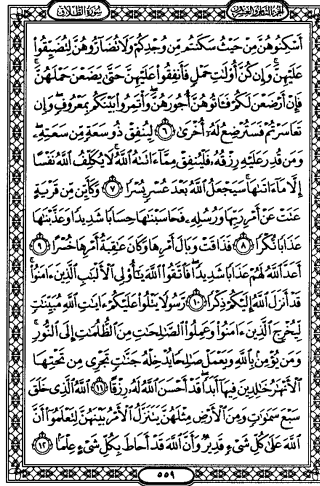 سُورَةُ الطَّلَاقِ الجُزءُ الثَّامِنُ وَالعِشْرُونَ
أَسْكِنُوهُنَّ مِنْ حَيْثُ سَكَنتُم مِّن وُجْدِكُمْ وَلَا تُضَآرُّوهُنَّ لِتُضَيِّقُوا۟
عَلَيْهِنَّ ۚ وَإِن كُنَّ أُو۟لَـٰتِ حَمْلٍ فَأَنفِقُوا۟ عَلَيْهِنَّ حَتَّىٰ يَضَعْنَ حَمْلَهُنَّ ۚ
فَإِنْ أَرْضَعْنَ لَكُمْ فَـَٔاتُوهُنَّ أُجُورَهُنَّ ۖ وَأْتَمِرُوا۟ بَيْنَكُم بِمَعْرُوفٍ ۖ وَإِن
تَعَاسَرْتُمْ فَسَتُرْضِعُ لَهُۥٓ أُخْرَىٰ ٦ لِيُنفِقْ ذُو سَعَةٍ مِّن سَعَتِهِۦ ۖ
وَمَن قُدِرَ عَلَيْهِ رِزْقُهُۥ فَلْيُنفِقْ مِمَّآ ءَاتَىٰهُ ٱللَّهُ ۚ لَا يُكَلِّفُ ٱللَّهُ نَفْسًا
إِلَّا مَآ ءَاتَىٰهَا ۚ سَيَجْعَلُ ٱللَّهُ بَعْدَ عُسْرٍ يُسْرًا ٧ وَكَأَيِّن مِّن قَرْيَةٍ
عَتَتْ عَنْ أَمْرِ رَبِّهَا وَرُسُلِهِۦ فَحَاسَبْنَـٰهَا حِسَابًا شَدِيدًا وَعَذَّبْنَـٰهَا
عَذَابًا نُّكْرًا ٨ فَذَاقَتْ وَبَالَ أَمْرِهَا وَكَانَ عَـٰقِبَةُ أَمْرِهَا خُسْرًا ٩
أَعَدَّ ٱللَّهُ لَهُمْ عَذَابًا شَدِيدًا ۖ فَٱتَّقُوا۟ ٱللَّهَ يَـٰٓأُو۟لِى ٱلْأَلْبَـٰبِ ٱلَّذِينَ ءَامَنُوا۟ ۚ
قَدْ أَنزَلَ ٱللَّهُ إِلَيْكُمْ ذِكْرًا ١٠ رَّسُولًا يَتْلُوا۟ عَلَيْكُمْ ءَايَـٰتِ ٱللَّهِ مُبَيِّنَـٰتٍ
لِّيُخْرِجَ ٱلَّذِينَ ءَامَنُوا۟ وَعَمِلُوا۟ ٱلصَّـٰلِحَـٰتِ مِنَ ٱلظُّلُمَـٰتِ إِلَى ٱلنُّورِ ۚ
وَمَن يُؤْمِنۢ بِٱللَّهِ وَيَعْمَلْ صَـٰلِحًا يُدْخِلْهُ جَنَّـٰتٍ تَجْرِى مِن تَحْتِهَا
ٱلْأَنْهَـٰرُ خَـٰلِدِينَ فِيهَآ أَبَدًا ۖ قَدْ أَحْسَنَ ٱللَّهُ لَهُۥ رِزْقًا ١١ ٱللَّهُ ٱلَّذِى خَلَقَ
سَبْعَ سَمَـٰوَٰتٍ وَمِنَ ٱلْأَرْضِ مِثْلَهُنَّ يَتَنَزَّلُ ٱلْأَمْرُ بَيْنَهُنَّ لِتَعْلَمُوٓا۟ أَنَّ
ٱللَّهَ عَلَىٰ كُلِّ شَىْءٍ قَدِيرٌ وَأَنَّ ٱللَّهَ قَدْ أَحَاطَ بِكُلِّ شَىْءٍ عِلْمًۢا ١٢
٥٥٩